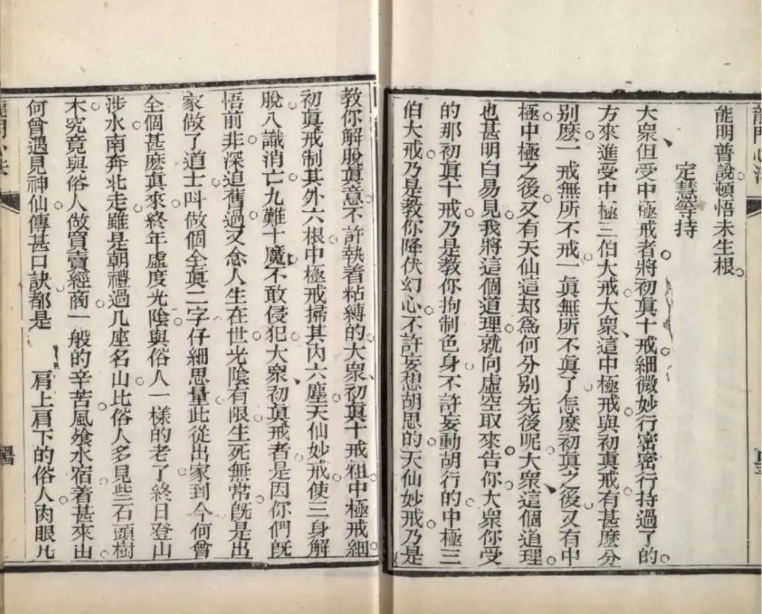 能明普說頓悟未生根
定慧等持
大衆但受中極戒者將初眞十戒細微妙行密密行持過了的
方來進受中極三伯大戒大衆這中極戒與初眞戒有甚麽分
別麽一戒無所不戒一眞無所不眞了怎麽初眞之後又有中
極中極之後又有天仙這却爲何分别先後呢大衆這個道理
也甚明白易見我將這個道理就向虛空取來告你大衆你受
的那初眞十戒乃是教你拘制色身不許妄動胡行的中極三
伯大戒乃是教你降伏幻心不許妄想胡思的天仙妙戒乃是
教你解脫眞意不許執着粘縛的大衆初眞十戒粗中極戒細
初眞戒制其外六根中極戒掃其内六塵天仙妙戒使三身解
脫八識消亡九難十魔不敢侵犯大衆初眞戒者是因你們旣
悟前非深追舊過又念人生在世光陰有限生死無常旣是出
家做了道士呌做個全眞二字仔細思量此從出家到今何曾
全個甚麽眞來終年虛度光陰與俗人一樣的老了終日登山
涉水南奔北走雖是朝禮過几座名山比俗人多見些石頭樹
木究竟與俗人做買賣經商一般的辛苦風飧水宿着甚來由
何曾遇見神仙傳甚口訣都是 肩上肩下的俗人肉眼凡